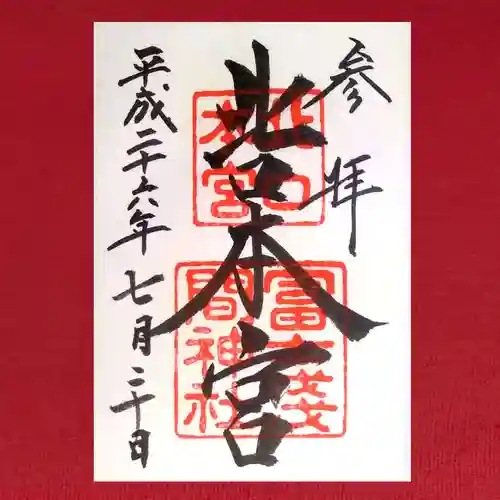 参拝
北口本宮
北口本宮
冨士浅間神社
平成二十六年七月二十日